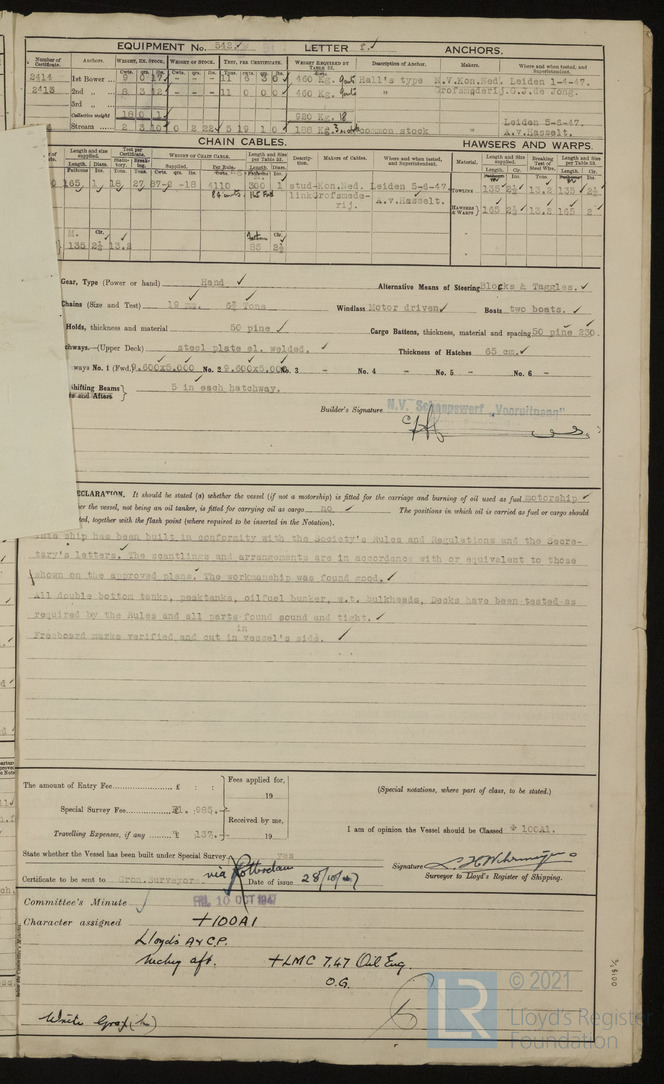 EQUIPMENT No. 542 LETTER f. ANCHORS.
Number of Certificate. Anchors. WEIGHT, EX. STOCK. WEIGHT OF STOCK. TEST, PER CERTIFICATE. WEIGHT REQUIRED BY TABLE 22. Description of Anchor. Makers. Where and when tested, and Superintendent.
Cwts. qrs. lbs. Cwts. qrs. lbs. Tons. cwts. qrs. lbs.
2414 1st Bower 9 0 17 - - - 11 6 3 0 460 Kg. Hall's type N.V.Kon.Ned. Leiden 1-4-47.
2413 2nd „ 8 3 12 - - - 11 0 0 0 460 Kg. „ Grofsmederij.G.J.de Jong.
3rd „
Collective weight 18 0 1 920 Kg. 18
Stream 2 3 10 0 2 22 5 19 1 0 188 Kg. common stock „ Leiden 5-6-47. A.v.Hasselt.
CHAIN CABLES. HAWSERS AND WARPS.
Length and size supplied. Test per Certificate. WEIGHT OF CHAIN CABLE. Length and Size per Table 22. Description. Makers of Cables. Where and when tested, and Superintendent. Material. Length and Size supplied. Breaking Test of Steel Wire. Length and Size per Table 22.
165 1 18 27 87-2-18 4110 300 1 stud-link Kon.Ned. Grofsmederij. Leiden 5-6-47. A.v.Hasselt. TOWLINE 135 2½ 13.2 135 2½
HAWSERS & WARPS 165 2 13.2 165 2
M. Cir.
135 2½ 13.2 85 2½
Gear, Type (Power or hand) Hand Alternative Means of Steering Blocks & Taggles.
Chains (Size and Test) 19 mm. 6¾ Tons Windlass Motor driven Boats two boats.
Holds, thickness and material 50 pine Cargo Battens, thickness, material and spacing 50 pine 230
hways.—(Upper Deck) steel plate el. welded. Thickness of Hatches 65 cm.
ways No. 1 (Fwd) 9.600x5.000 No. 2 9.600x5.000 No. 3 - No. 4 - No. 5 - No. 6 -
Shifting Beams and Afters } 5 in each hatchway.
Builder's Signature N.V. Scheepswerf "Vooruitgang"
DECLARATION. It should be stated (a) whether the vessel (if not a motorship) is fitted for the carriage and burning of oil used as fuel motorship
er the vessel, not being an oil tanker, is fitted for carrying oil as cargo no The positions in which oil is carried as fuel or cargo should
ted, together with the flash point (where required to be inserted in the Notation).
This ship has been built in conformity with the Society's Rules and Regulations and the Secre-
tary's letters. The scantlings and arrangements are in accordance with or equivalent to those
shown on the approved plans. The workmanship was found good.
All double bottom tanks, peaktanks, oilfuel bunker, w.t. bulkheads, Decks have been tested as
required by the Rules and all parts found sound and tight.
in
Freeboard marks verified and cut in vessel's side.
The amount of Entry Fee £ : : Fees applied for, 19
(Special notations, where part of class, to be stated.)
Special Survey Fee Fl. 985.- Received by me,
Travelling Expenses, if any 137.- 19
I am of opinion the Vessel should be Classed + 100A1.
State whether the Vessel has been built under Special Survey yes
Signature
Surveyor to Lloyd's Register of Shipping.
Certificate to be sent to Gron.Surveyors via Rotterdam Date of issue 28/10/47
Committee's Minute FRI. 10 OCT 1947
Character assigned +100A1
Lloyd's A & C.P.
Mchy aft. +LMC 7.47 Oil Eng.
O.G.
© 2021
Lloyd's Register
Foundation